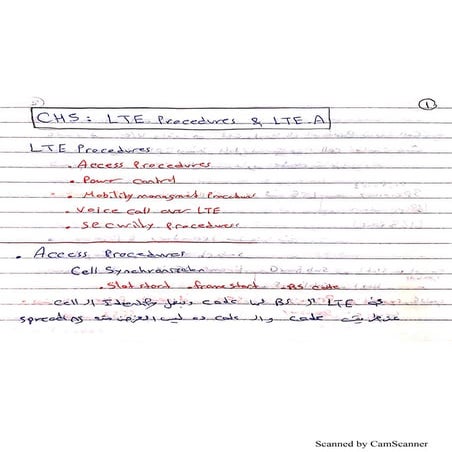 ①
CH5: LTE Procedures & LTE-A
LTE Procedures
• Access Procedures
• Power Control
• Mobility managment Procedures
• Voice call over LTE
• Security Procedures
• Access Procedures
Cell Synchronization
• Slot start • frame start • BS code
فى LTE الـ BS ليها code الـ cell
spreading code والـ code ده ليه
Scanned by CamScanner